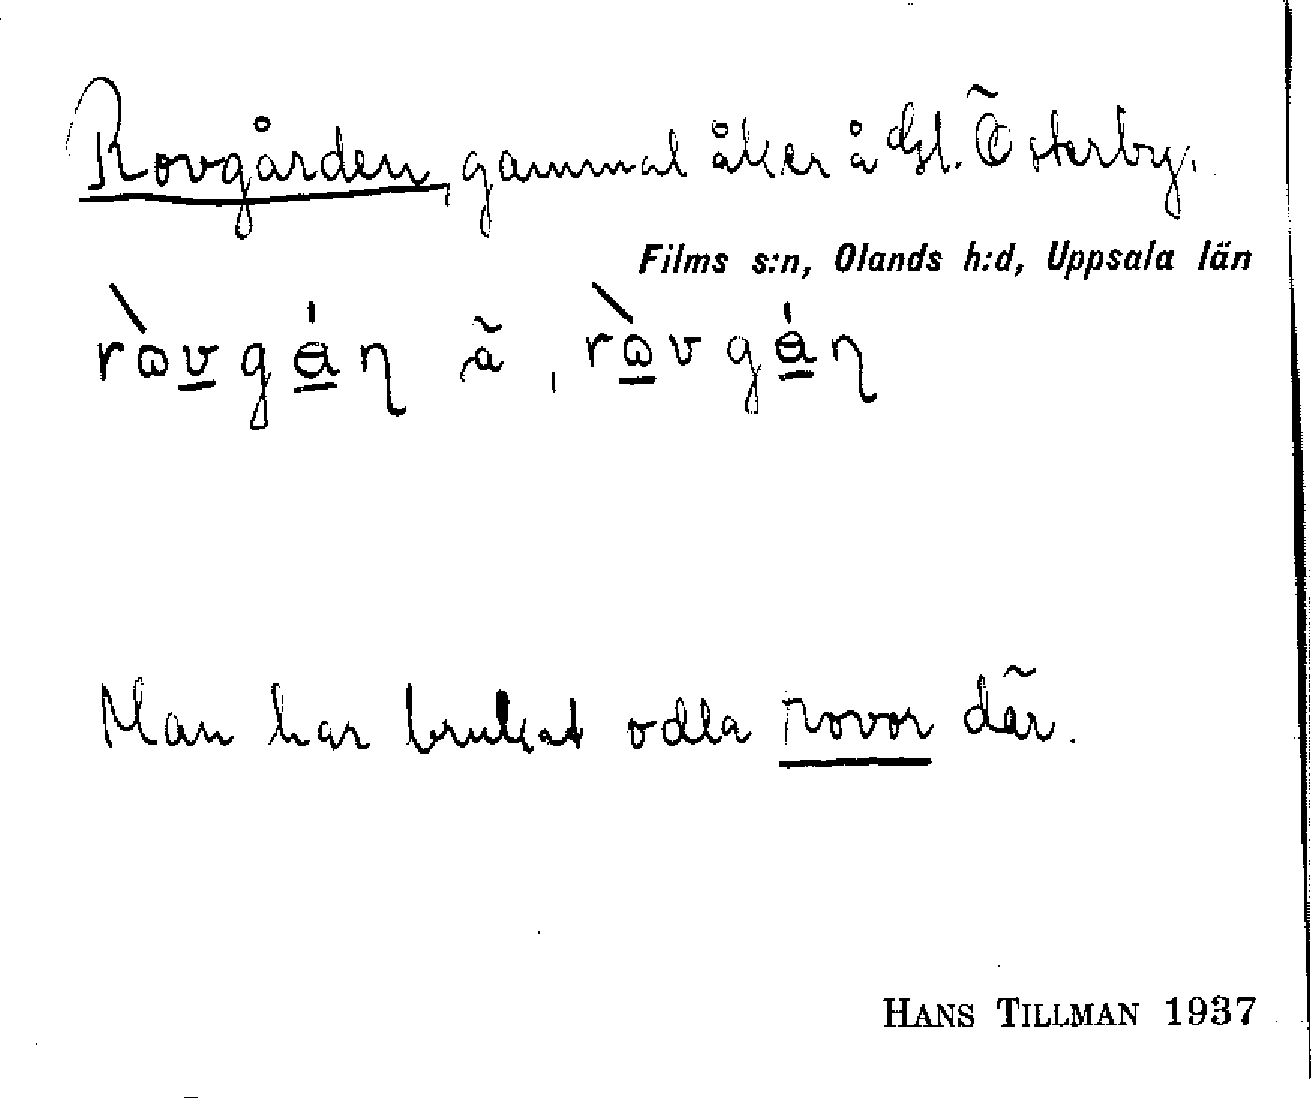 Rovgården, gammal åker å Gl. Österby.
Films s:n, Olands h:d, Uppsala län
å
Man har brukat odla rovor där.
HANS TILLMAN 1937